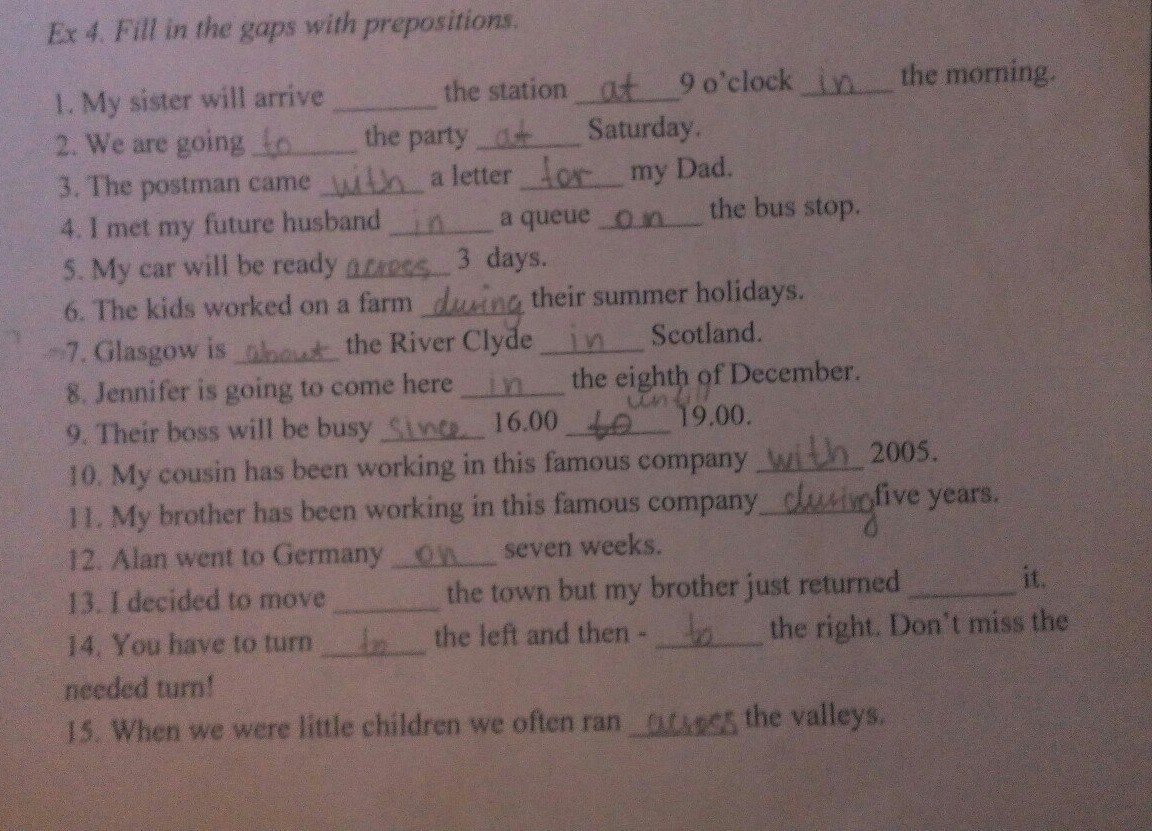 Ex 4. Fill in the gaps with prepositions.
1. My sister will arrive ________ the station at 9 o'clock in the morning.
2. We are going to the party at Saturday.
3. The postman came with a letter for my Dad.
4. I met my future husband in a queue on the bus stop.
5. My car will be ready across 3 days.
6. The kids worked on a farm during their summer holidays.
7. Glasgow is about the River Clyde in Scotland.
8. Jennifer is going to come here in the eighth of December.
untill
9. Their boss will be busy since 16.00 to 19.00.
10. My cousin has been working in this famous company with 2005.
11. My brother has been working in this famous company during five years.
12. Alan went to Germany on seven weeks.
13. I decided to move ________ the town but my brother just returned ________ it.
14. You have to turn to the left and then - to the right. Don't miss the
needed turn!
15. When we were little children we often ran across the valleys.